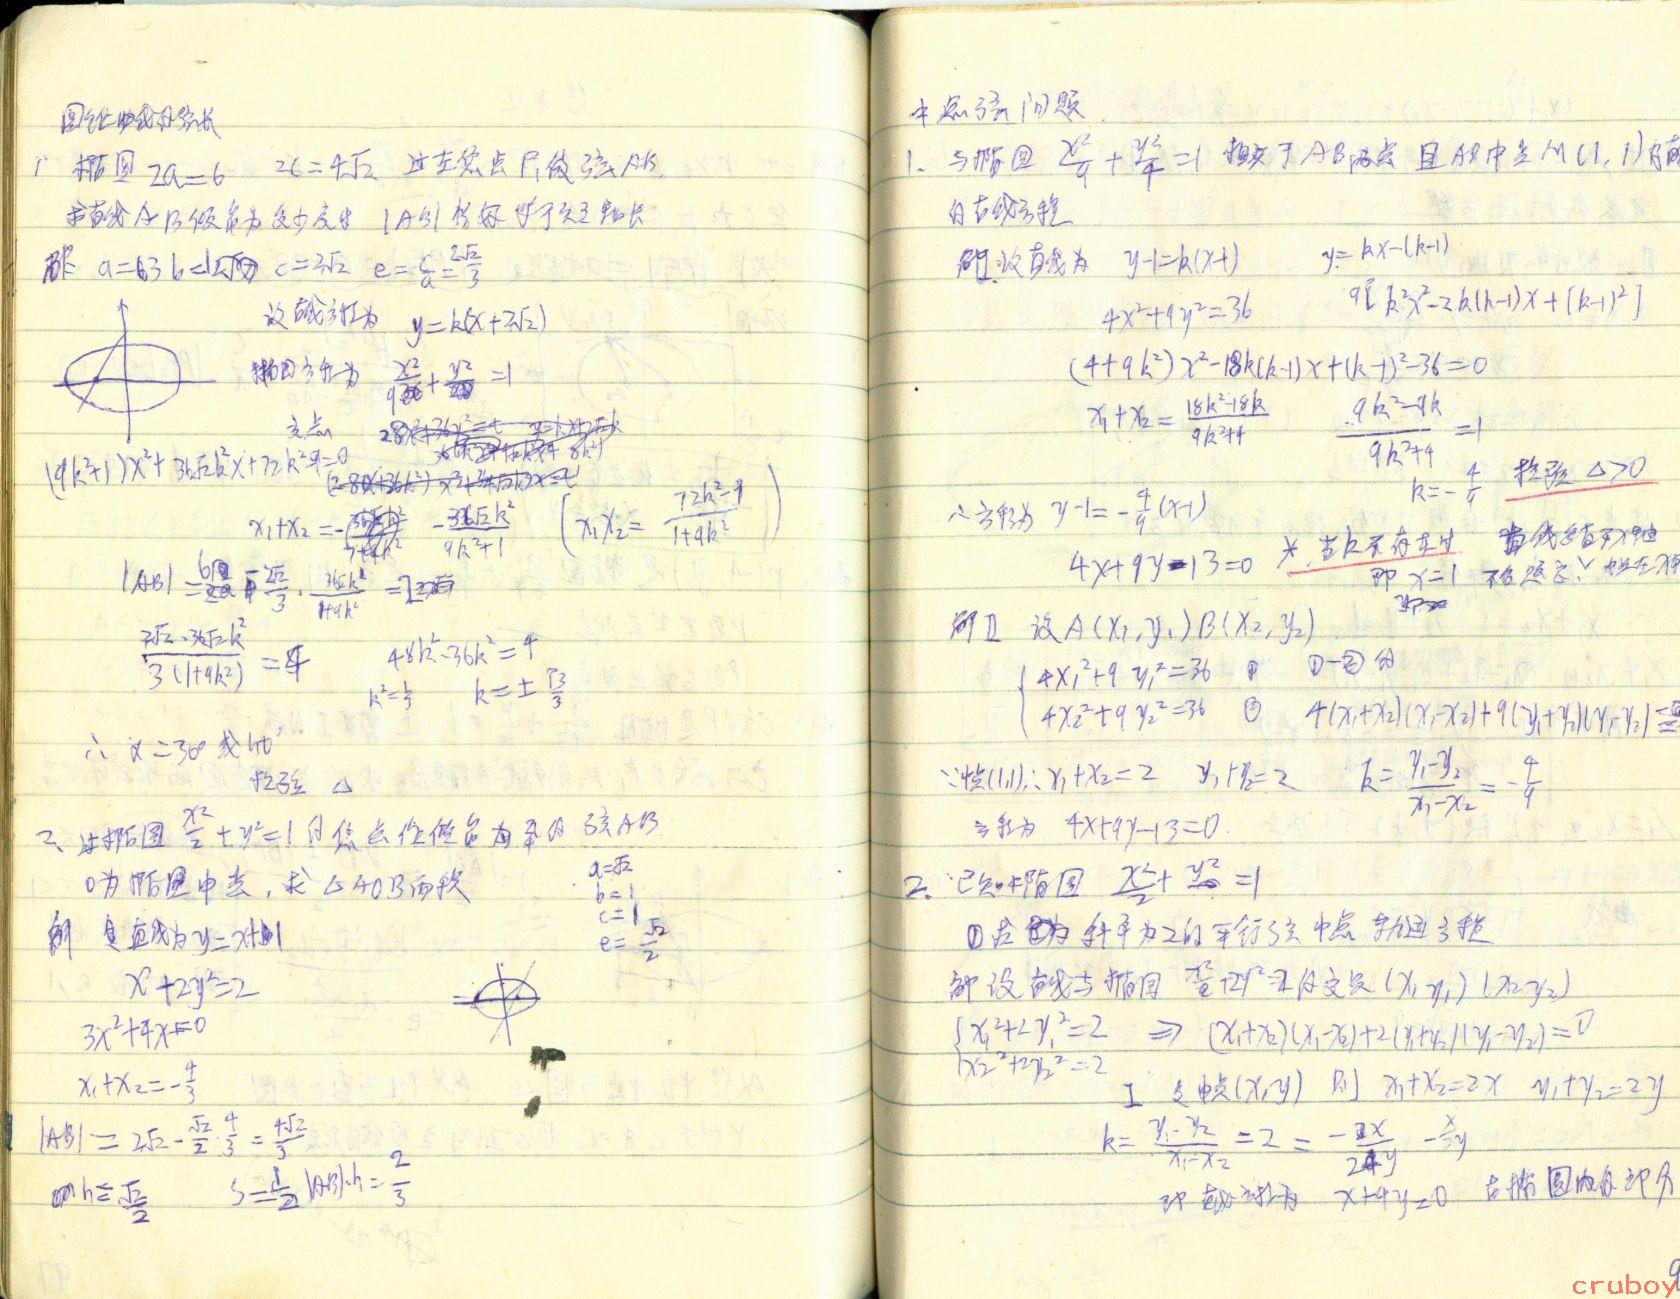 圆锥曲线的弦长
1 椭圆 2a=6 2c=4√2 过左焦点F₁做弦AB.
求直线AB倾角为多少度时 |AB|恰好等于短轴长
解 a=3 b=1 c=2√2 e=c/a=2√2/3
设直线方程为 y=k(x+2√2)
椭圆方程为 x²/9+y²=1
交点
(9k²+1)x²+36√2k²x+72k²-9=0
x₁+x₂= -36√2k²/(9k²+1) (x₁x₂=(72k²-9)/(1+9k²))
|AB|=6-2√2/3·36√2k²/(1+9k²)=2
2√2·36√2k²/3(1+9k²)=4 48k²-36k²=4
k²=1/3 k=±√3/3
∴α=30°或
检验 △
2、过椭圆 x²/2+y²=1的焦点作倾角为 的弦AB
O为椭圆中点，求△AOB面积
a=√2
b=1
c=1
e=√2/2
解 设直线为y=x+1
x²+2y²=2
3x²+4x=0
x₁+x₂=-4/3
|AB|=2√2-√2/2·4/3=4√2/3
h=√2/2 S=1/2|AB|·h=2/3
中点弦问题
1. 与椭圆 x²/9+y²/4=1 相交于AB两点 且AB中点M(1,1)
的直线方程
解I:设直线为 y-1=k(x-1) y=kx-(k-1)
4x²+9y²=36 9[k²x²-2k(k-1)x+(k-1)²]
(4+9k²)x²-18k(k-1)x+(k-1)²-36=0
x₁+x₂=(18k²-18k)/(9k²+4) (9k²-9k)/(9k²+4)=1
k=-4/9 检验 △>0
∴方程为 y-1=-4/9(x-1)
4x+9y-13=0 * 当k不存在时
即x=1
解II 设A(x₁,y₁)B(x₂,y₂)
4x₁²+9y₁²=36 ① ①-②得
4x₂²+9y₂²=36 ② 4(x₁+x₂)(x₁-x₂)+9(y₁+y₂)(y₁-y₂)=0
∵中点(1,1)∴x₁+x₂=2 y₁+y₂=2 k=(y₁-y₂)/(x₁-x₂)=-4/9
方程为 4x+9y-13=0.
2. 已知椭圆 x²/2+y²=1
①求斜率为2的平行弦中点轨迹方程
解 设直线与椭圆 的交点(x₁y₁)(x₂y₂)
x₁²+2y₁²=2 ⇒ (x₁+x₂)(x₁-x₂)+2(y₁+y₂)(y₁-y₂)=0
x₂²+2y₂²=2
设中点(x,y) 则 x₁+x₂=2x y₁+y₂=2y
k=(y₁-y₂)/(x₁-x₂)=2=
即直线方程为 x+4y=0 在椭圆内的部分
cruboy